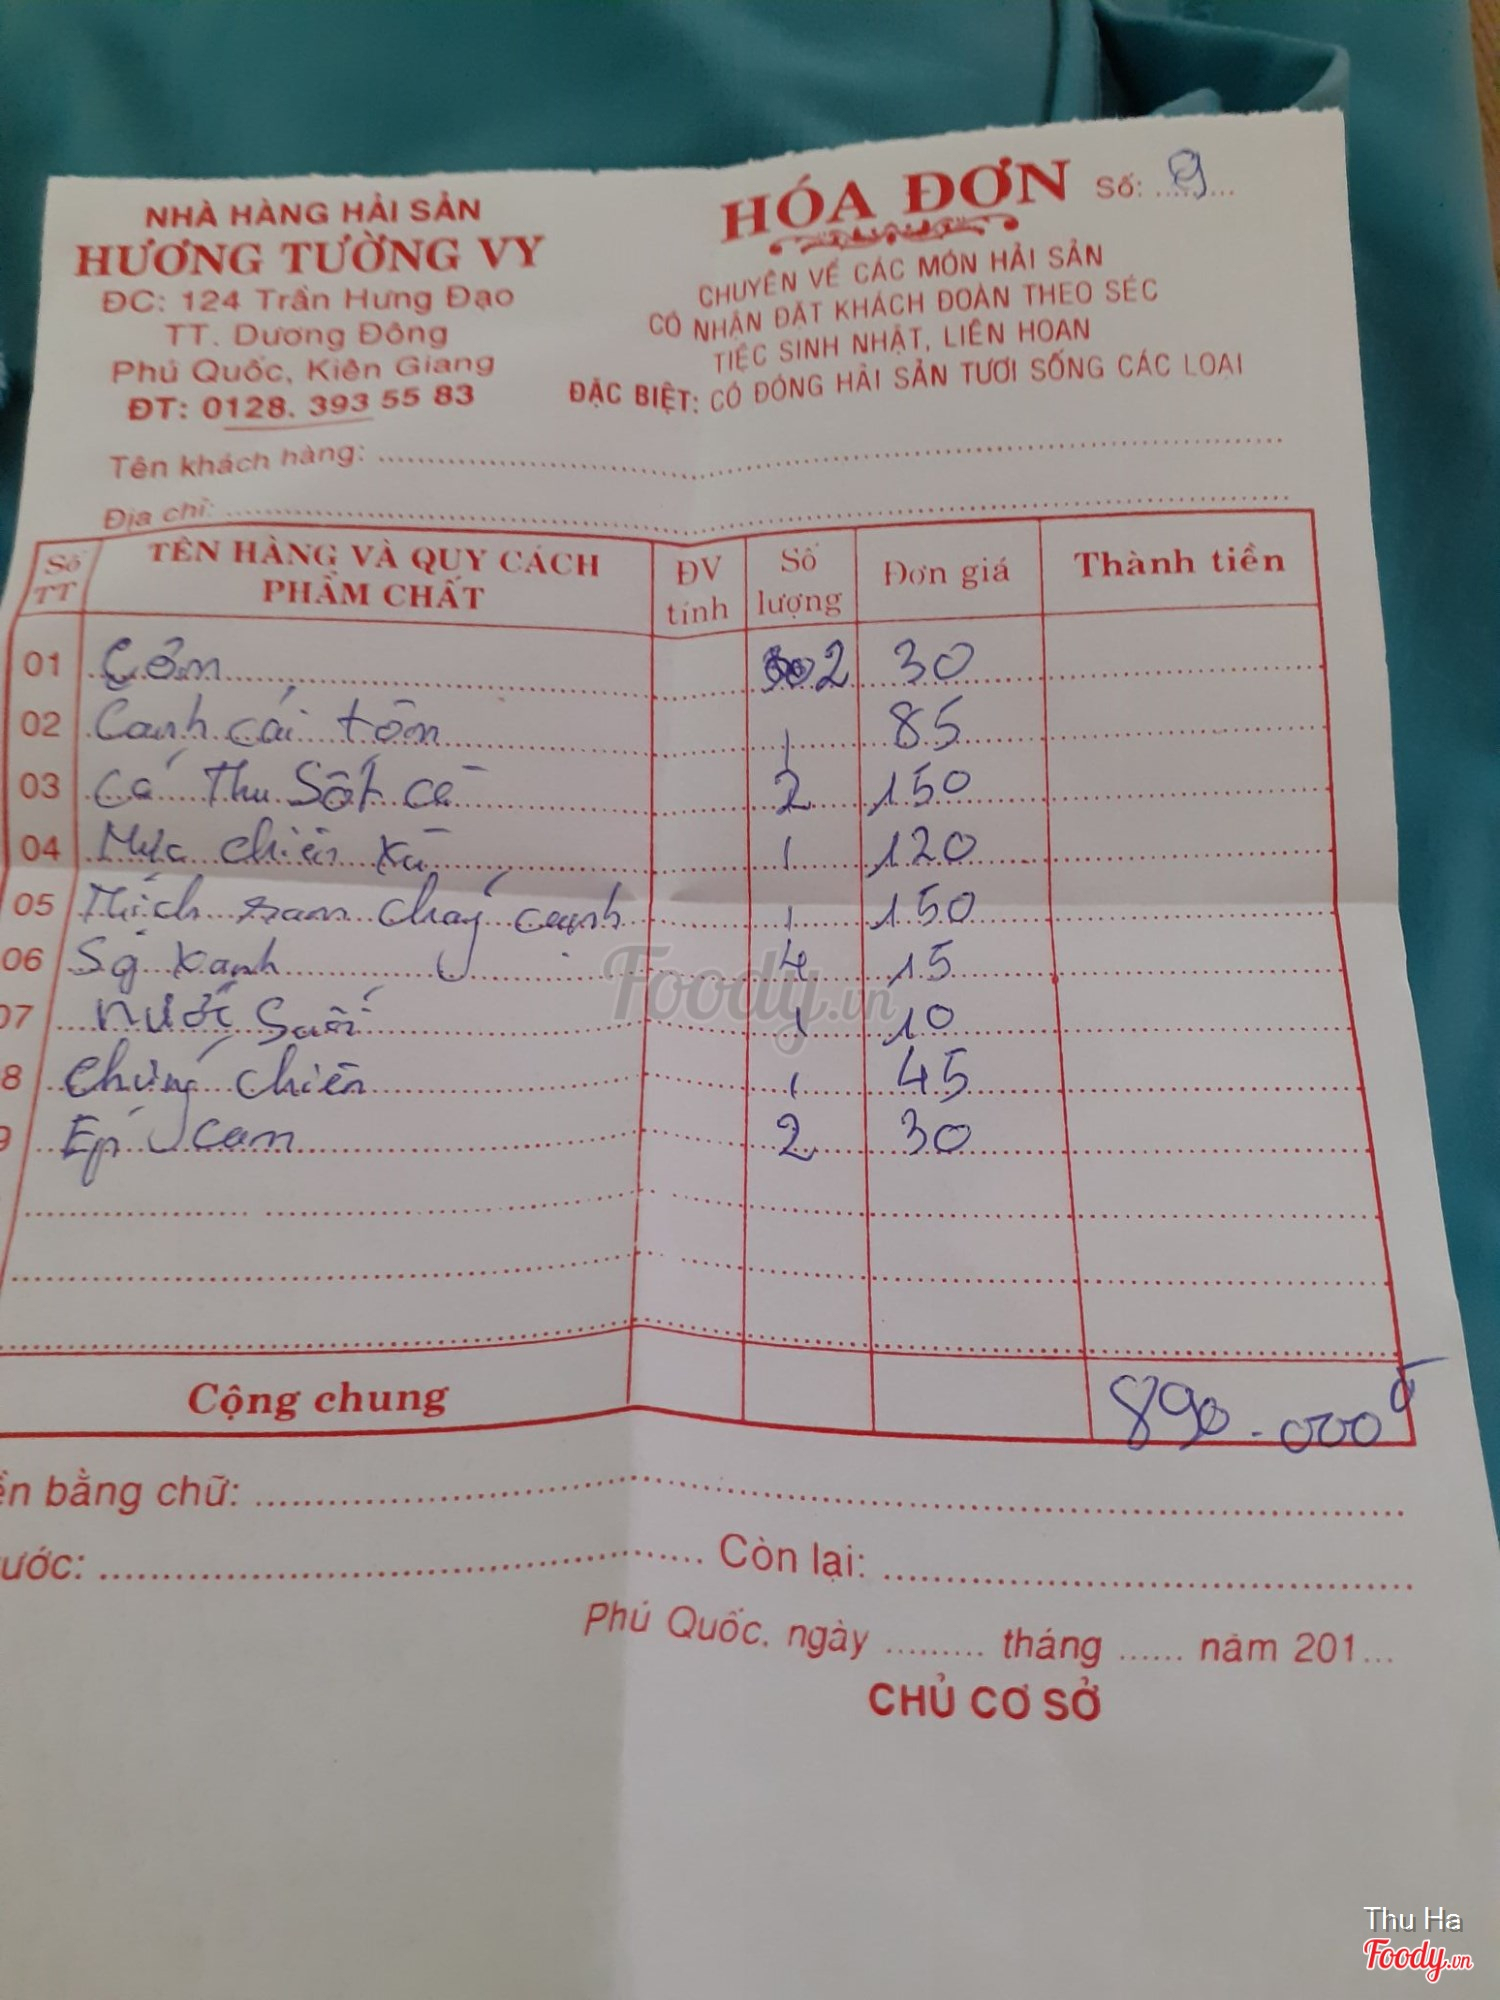 NHÀ HÀNG HẢI SẢN
HƯƠNG TƯỜNG VY
ĐC: 124 Trần Hưng Đạo
TT. Dương Đông
Phú Quốc, Kiên Giang
ĐT: 0128. 393 55 83
HÓA ĐƠN Số: 9
CHUYÊN VỀ CÁC MÓN HẢI SẢN
CÓ NHẬN ĐẶT KHÁCH ĐOÀN THEO SÉC
TIỆC SINH NHẬT, LIÊN HOAN
ĐẶC BIỆT: CÓ ĐÓNG HẢI SẢN TƯƠI SỐNG CÁC LOẠI
Tên khách hàng:
Địa chỉ:
Số TT TÊN HÀNG VÀ QUY CÁCH PHẨM CHẤT ĐV tính Số lượng Đơn giá Thành tiền
01 Cơm 2 30
02 Canh cải tôm 1 85
03 Cá Thu Sốt cà 2 150
04 Mực chiên xù 1 120
05 cạnh 1 150
06 Sg xanh 4 15
07 nước Suối 1 10
8 chiên 1 45
9 Ép cam 2 30
Cộng chung 890.000đ
ền bằng chữ:
ước: Còn lại:
Phú Quốc, ngày tháng năm 201
CHỦ CƠ SỞ
Foody.vn
Thu Ha
Foody.vn